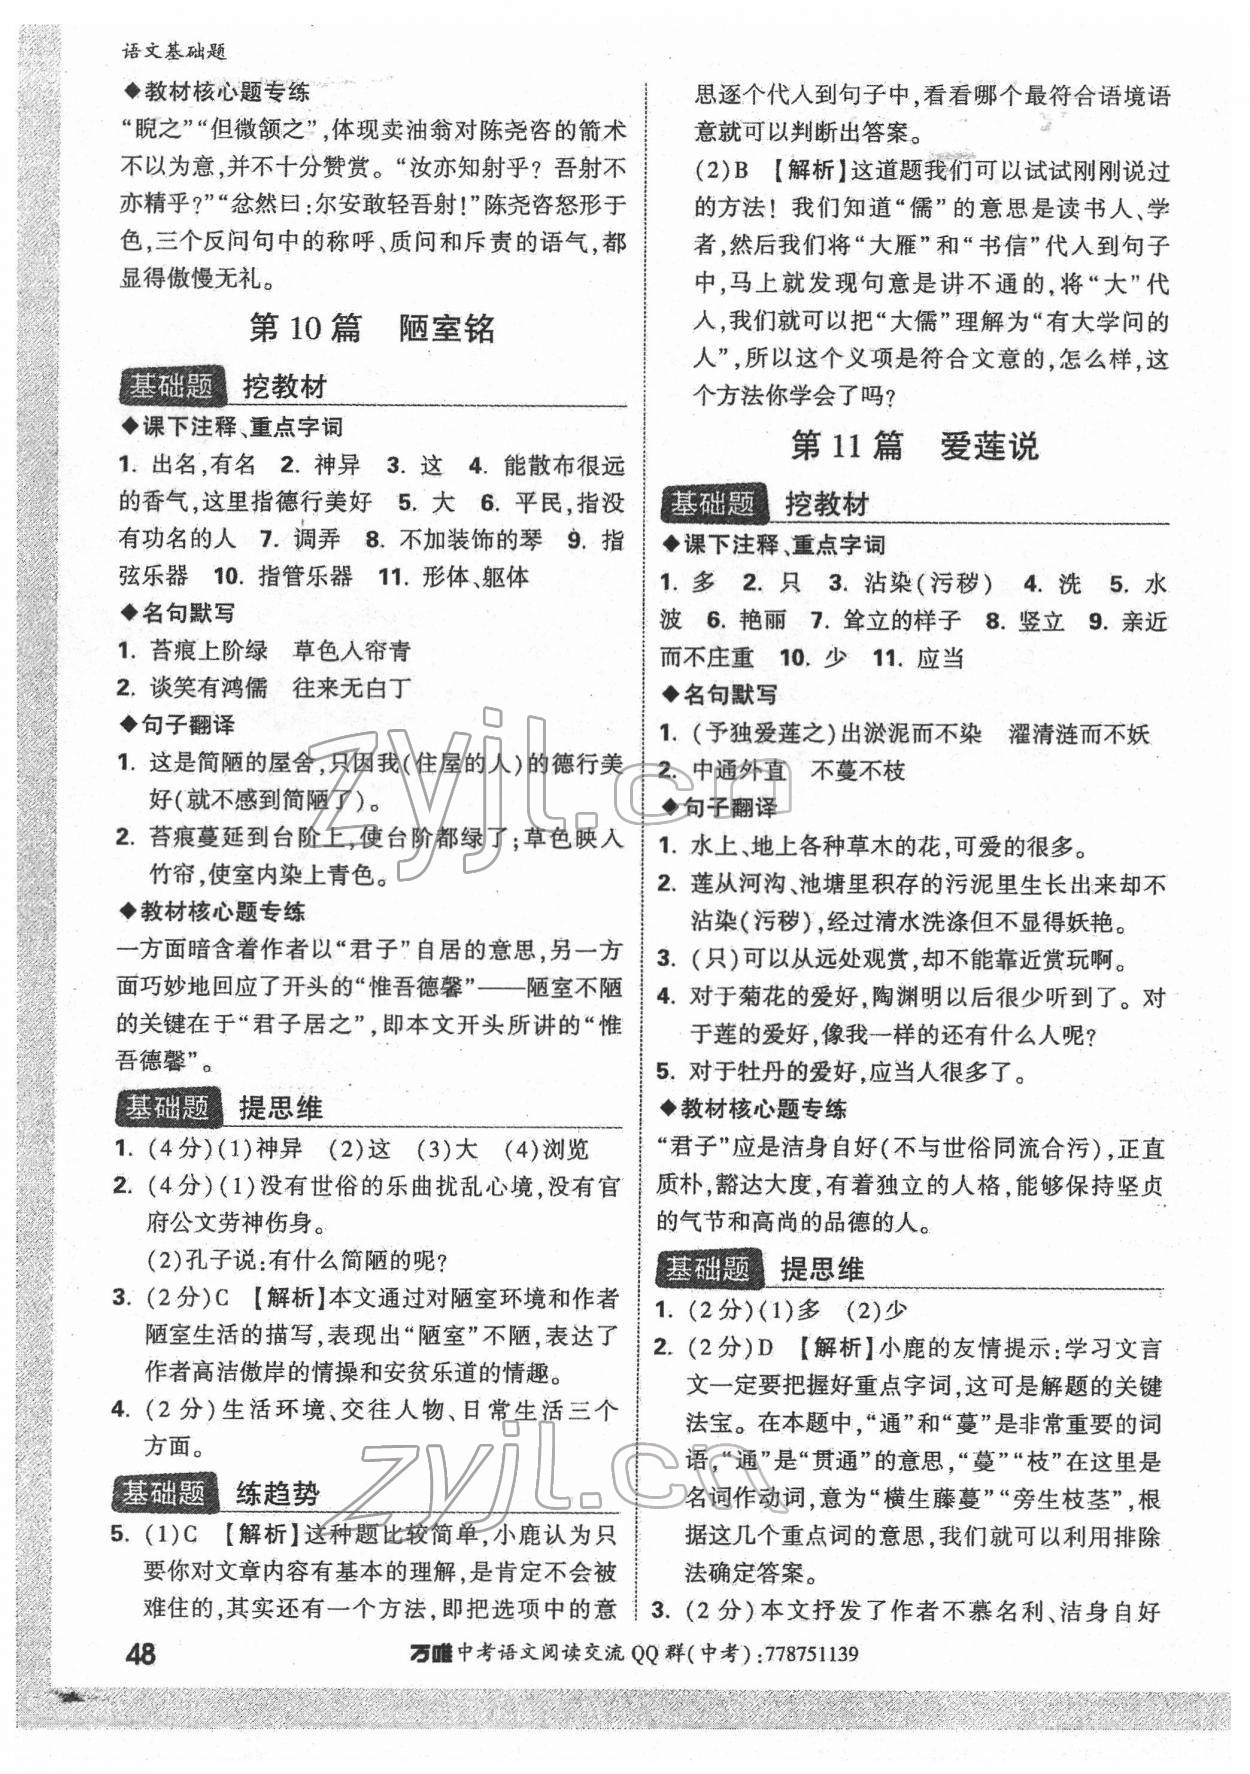 语文基础题
◆教材核心题专练
“睨之”“但微颔之”,体现卖油翁对陈尧咨的箭术
不以为意,并不十分赞赏。“汝亦知射乎？吾射不
亦精乎？”“忿然曰:尔安敢轻吾射!”陈尧咨怒形于
色,三个反问句中的称呼、质问和斥责的语气,都
显得傲慢无礼。
第10篇 陋室铭
基础题 挖教材
◆课下注释、重点字词
1. 出名,有名 2. 神异 3. 这 4. 能散布很远
的香气,这里指德行美好 5. 大 6. 平民,指没
有功名的人 7. 调弄 8. 不加装饰的琴 9. 指
弦乐器 10. 指管乐器 11. 形体、躯体
◆名句默写
1. 苔痕上阶绿 草色人帘青
2. 谈笑有鸿儒 往来无白丁
◆句子翻译
1. 这是简陋的屋舍,只因我(住屋的人)的德行美
好(就不感到简陋了)。
2. 苔痕蔓延到台阶上,使台阶都绿了;草色映人
竹帘,使室内染上青色。
◆教材核心题专练
一方面暗含着作者以“君子”自居的意思,另一方
面巧妙地回应了开头的“惟吾德馨”——陋室不陋
的关键在于“君子居之”,即本文开头所讲的“惟
吾德馨”。
基础题 提思维
1. (4分)(1)神异 (2)这 (3)大 (4)浏览
2. (4分)(1)没有世俗的乐曲扰乱心境,没有官
府公文劳神伤身。
(2)孔子说:有什么简陋的呢?
3. (2分)C 【解析】本文通过对陋室环境和作者
陋室生活的描写,表现出“陋室”不陋,表达了
作者高洁傲岸的情操和安贫乐道的情趣。
4. (2分)生活环境、交往人物、日常生活三个
方面。
基础题 练趋势
5. (1)C 【解析】这种题比较简单,小鹿认为只
要你对文章内容有基本的理解,是肯定不会被
难住的,其实还有一个方法,即把选项中的意
思逐个代人到句子中,看看哪个最符合语境语
意就可以判断出答案。
(2)B 【解析】这道题我们可以试试刚刚说过
的方法! 我们知道“儒”的意思是读书人、学
者,然后我们将“大雁”和“书信”代人到句子
中,马上就发现句意是讲不通的,将“大”代
人,我们就可以把“大儒”理解为“有大学问的
人”,所以这个义项是符合文意的,怎么样,这
个方法你学会了吗?
第11篇 爱莲说
基础题 挖教材
◆课下注释、重点字词
1. 多 2. 只 3. 沾染(污秽) 4. 洗 5. 水
波 6. 艳丽 7. 耸立的样子 8. 竖立 9. 亲近
而不庄重 10. 少 11. 应当
◆名句默写
1. (予独爱莲之)出淤泥而不染 濯清涟而不妖
2. 中通外直 不蔓不枝
◆句子翻译
1. 水上、地上各种草木的花,可爱的很多。
2. 莲从河沟、池塘里积存的污泥里生长出来却不
沾染(污秽),经过清水洗涤但不显得妖艳。
3. (只)可以从远处观赏,却不能靠近赏玩啊。
4. 对于菊花的爱好,陶渊明以后很少听到了。对
于莲的爱好,像我一样的还有什么人呢?
5. 对于牡丹的爱好,应当人很多了。
◆教材核心题专练
“君子”应是洁身自好(不与世俗同流合污),正直
质朴,豁达大度,有着独立的人格,能够保持坚贞
的气节和高尚的品德的人。
基础题 提思维
1. (2分)(1)多 (2)少
2. (2分)D 【解析】小鹿的友情提示:学习文言
文一定要把握好重点字词,这可是解题的关键
法宝。在本题中,“通”和“蔓”是非常重要的词
语,“通”是“贯通”的意思,“蔓”“枝”在这里是
名词作动词,意为“横生藤蔓”“旁生枝茎”,根
据这几个重点词的意思,我们就可以利用排除
法确定答案。
3. (2分)本文抒发了作者不慕名利、洁身自好
48 万唯中考语文阅读交流QQ群(中考):778751139
zyjl.cn
zyjl.cn